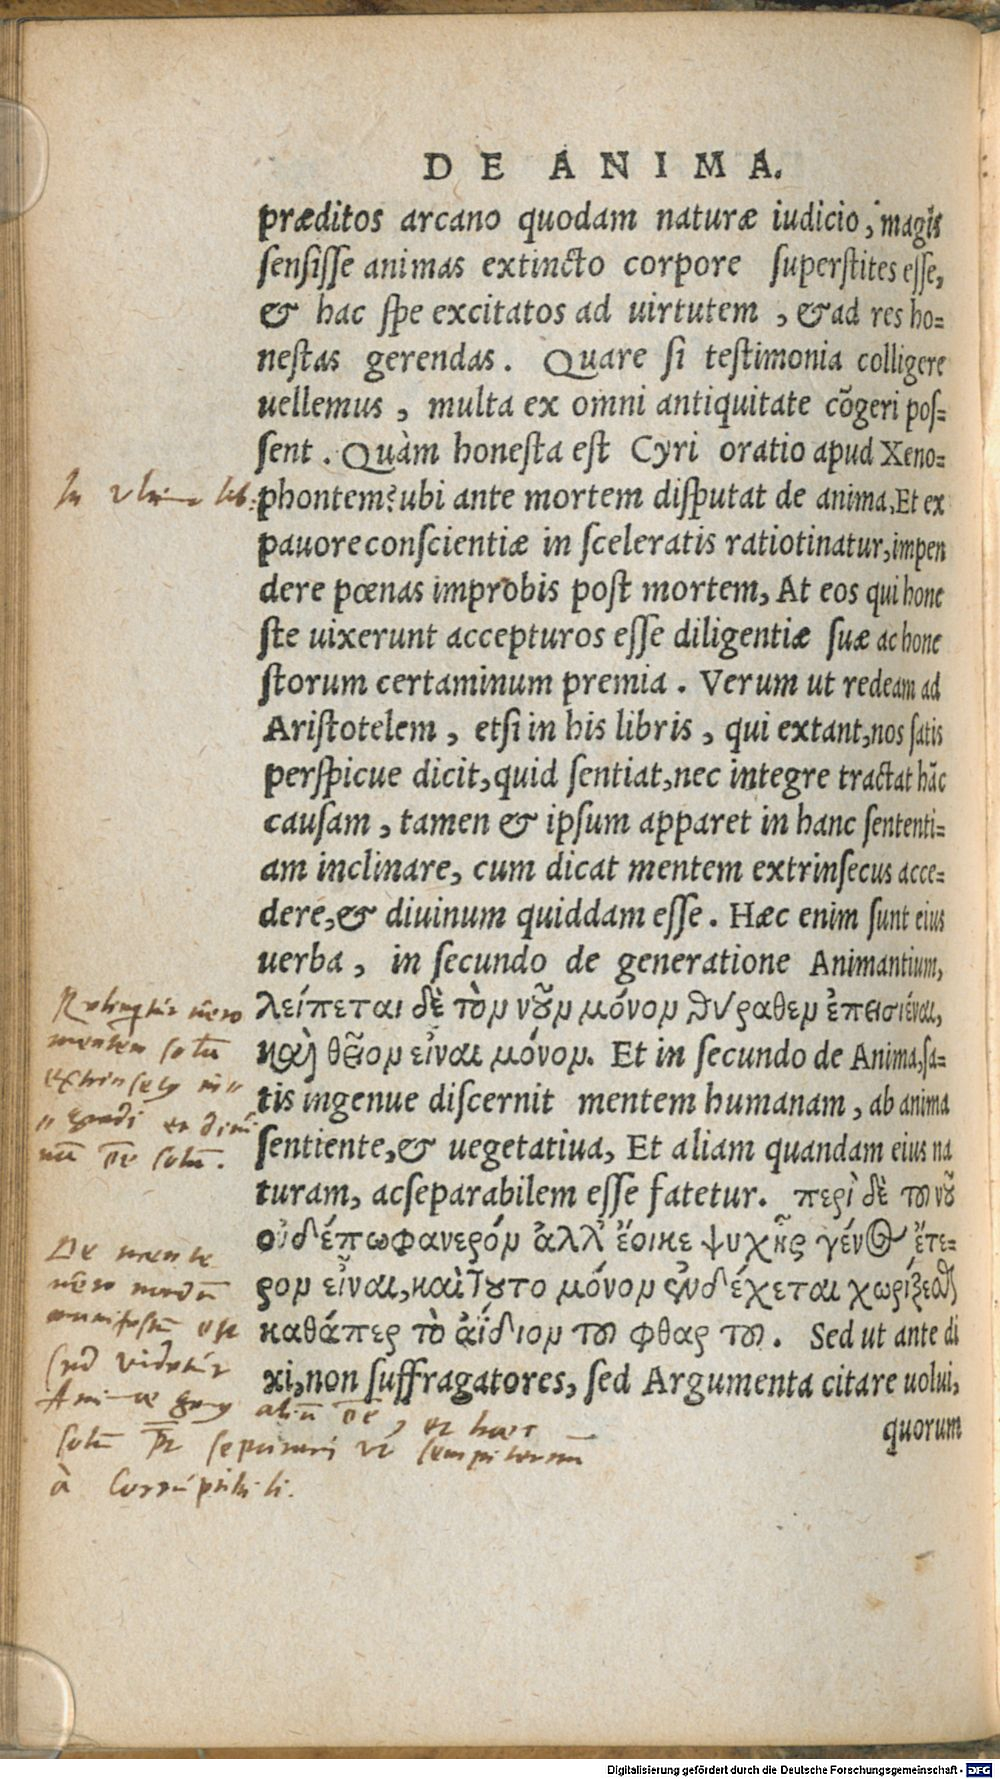 DE ANIMA.
præditos arcano quodam naturæ iudicio, magis
sensisse animas extincto corpore superstites esse,
& hac spe excitatos ad uirtutem, & ad res ho=
nestas gerendas. Quare si testimonia colligere
uellemus, multa ex omni antiquitate cõgeri pos=
sent. Quàm honesta est Cyri oratio apud Xeno=
In ultimo lib.
phontem? ubi ante mortem disputat de anima, Et ex
pauore conscientiæ in sceleratis ratiotinatur, impen
dere pœnas improbis post mortem, At eos qui hone
ste uixerunt accepturos esse diligentiæ suæ ac hone
storum certaminum premia. Verum ut redeam ad
Aristotelem, etsi in his libris, qui extant, nos satis
perspicue dicit, quid sentiat, nec integre tractat hãc
causam, tamen & ipsum apparet in hanc sententi=
am inclinare, cum dicat mentem extrinsecus acce=
dere, & diuinum quiddam esse. Hæc enim sunt eius
uerba, in secundo de generatione Animantium,
λείπεται δὲ τὸν νοῦν μόνον θύραθεν ἐπεισιέναι,
καὶ θεῖον εἶναι μόνον. Et in secundo de Anima, sa=
tis ingenue discernit mentem humanam, ab anima
sentiente, & uegetatiua, Et aliam quandam eius na
turam, ac separabilem esse fatetur. περὶ δὲ τοῦ νοῦ
οὐδέπω φανερόν ἀλλ' ἔοικε ψυχῆς γένος ἕτε=
ρον εἶναι, καὶ τοῦτο μόνον ἐνδέχεται χωρίζεσθ
καθάπερ τὸ ἀίδιον τοῦ φθαρτοῦ. Sed ut ante di
xi, non suffragatores, sed Argumenta citare uolui,
quorum
Relinquitur uero
mentem solũ
extrinsecus in=
=gredi et diui
nũ esse solũ.
De mente
uero nondũ
manifestũ est
sed videtur
Animæ genus aliũ esse, et hoc
solũ separari ut sempiternũ
à corruptibili.
Digitalisierung gefördert durch die Deutsche Forschungsgemeinschaft - DFG